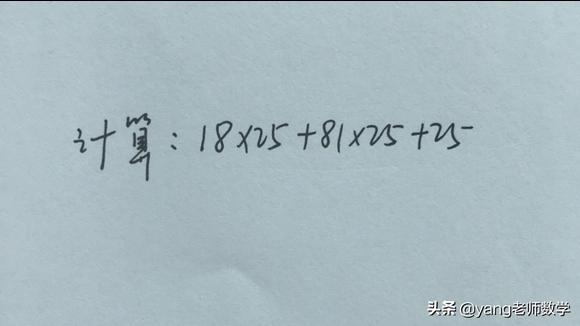 计算：18×25+81×25+25
头条 @yang老师数学